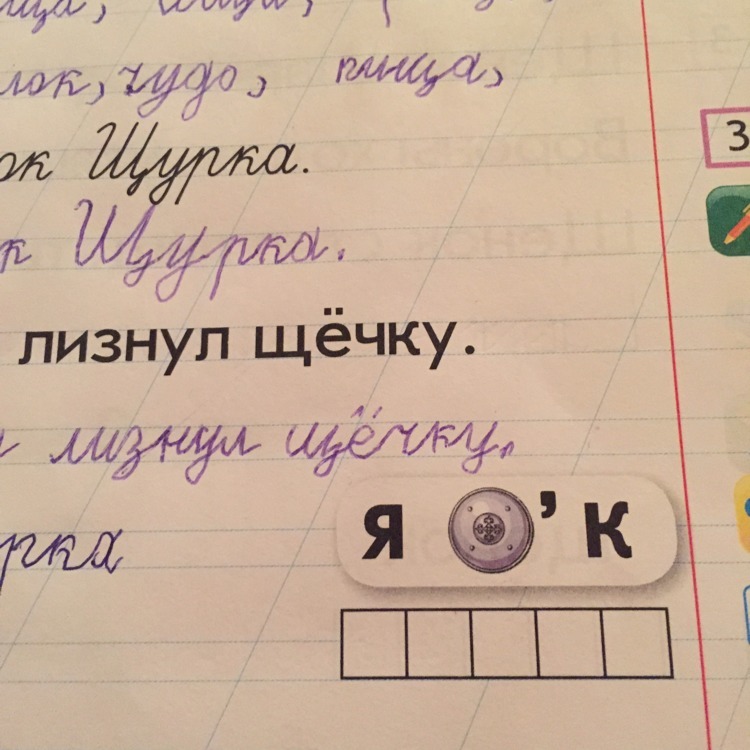 лок, чудо, пища,
ок Щурка.
к Щурка.
лизнул щёчку.
лизнул щёчку.
урка
Я ’ К
З